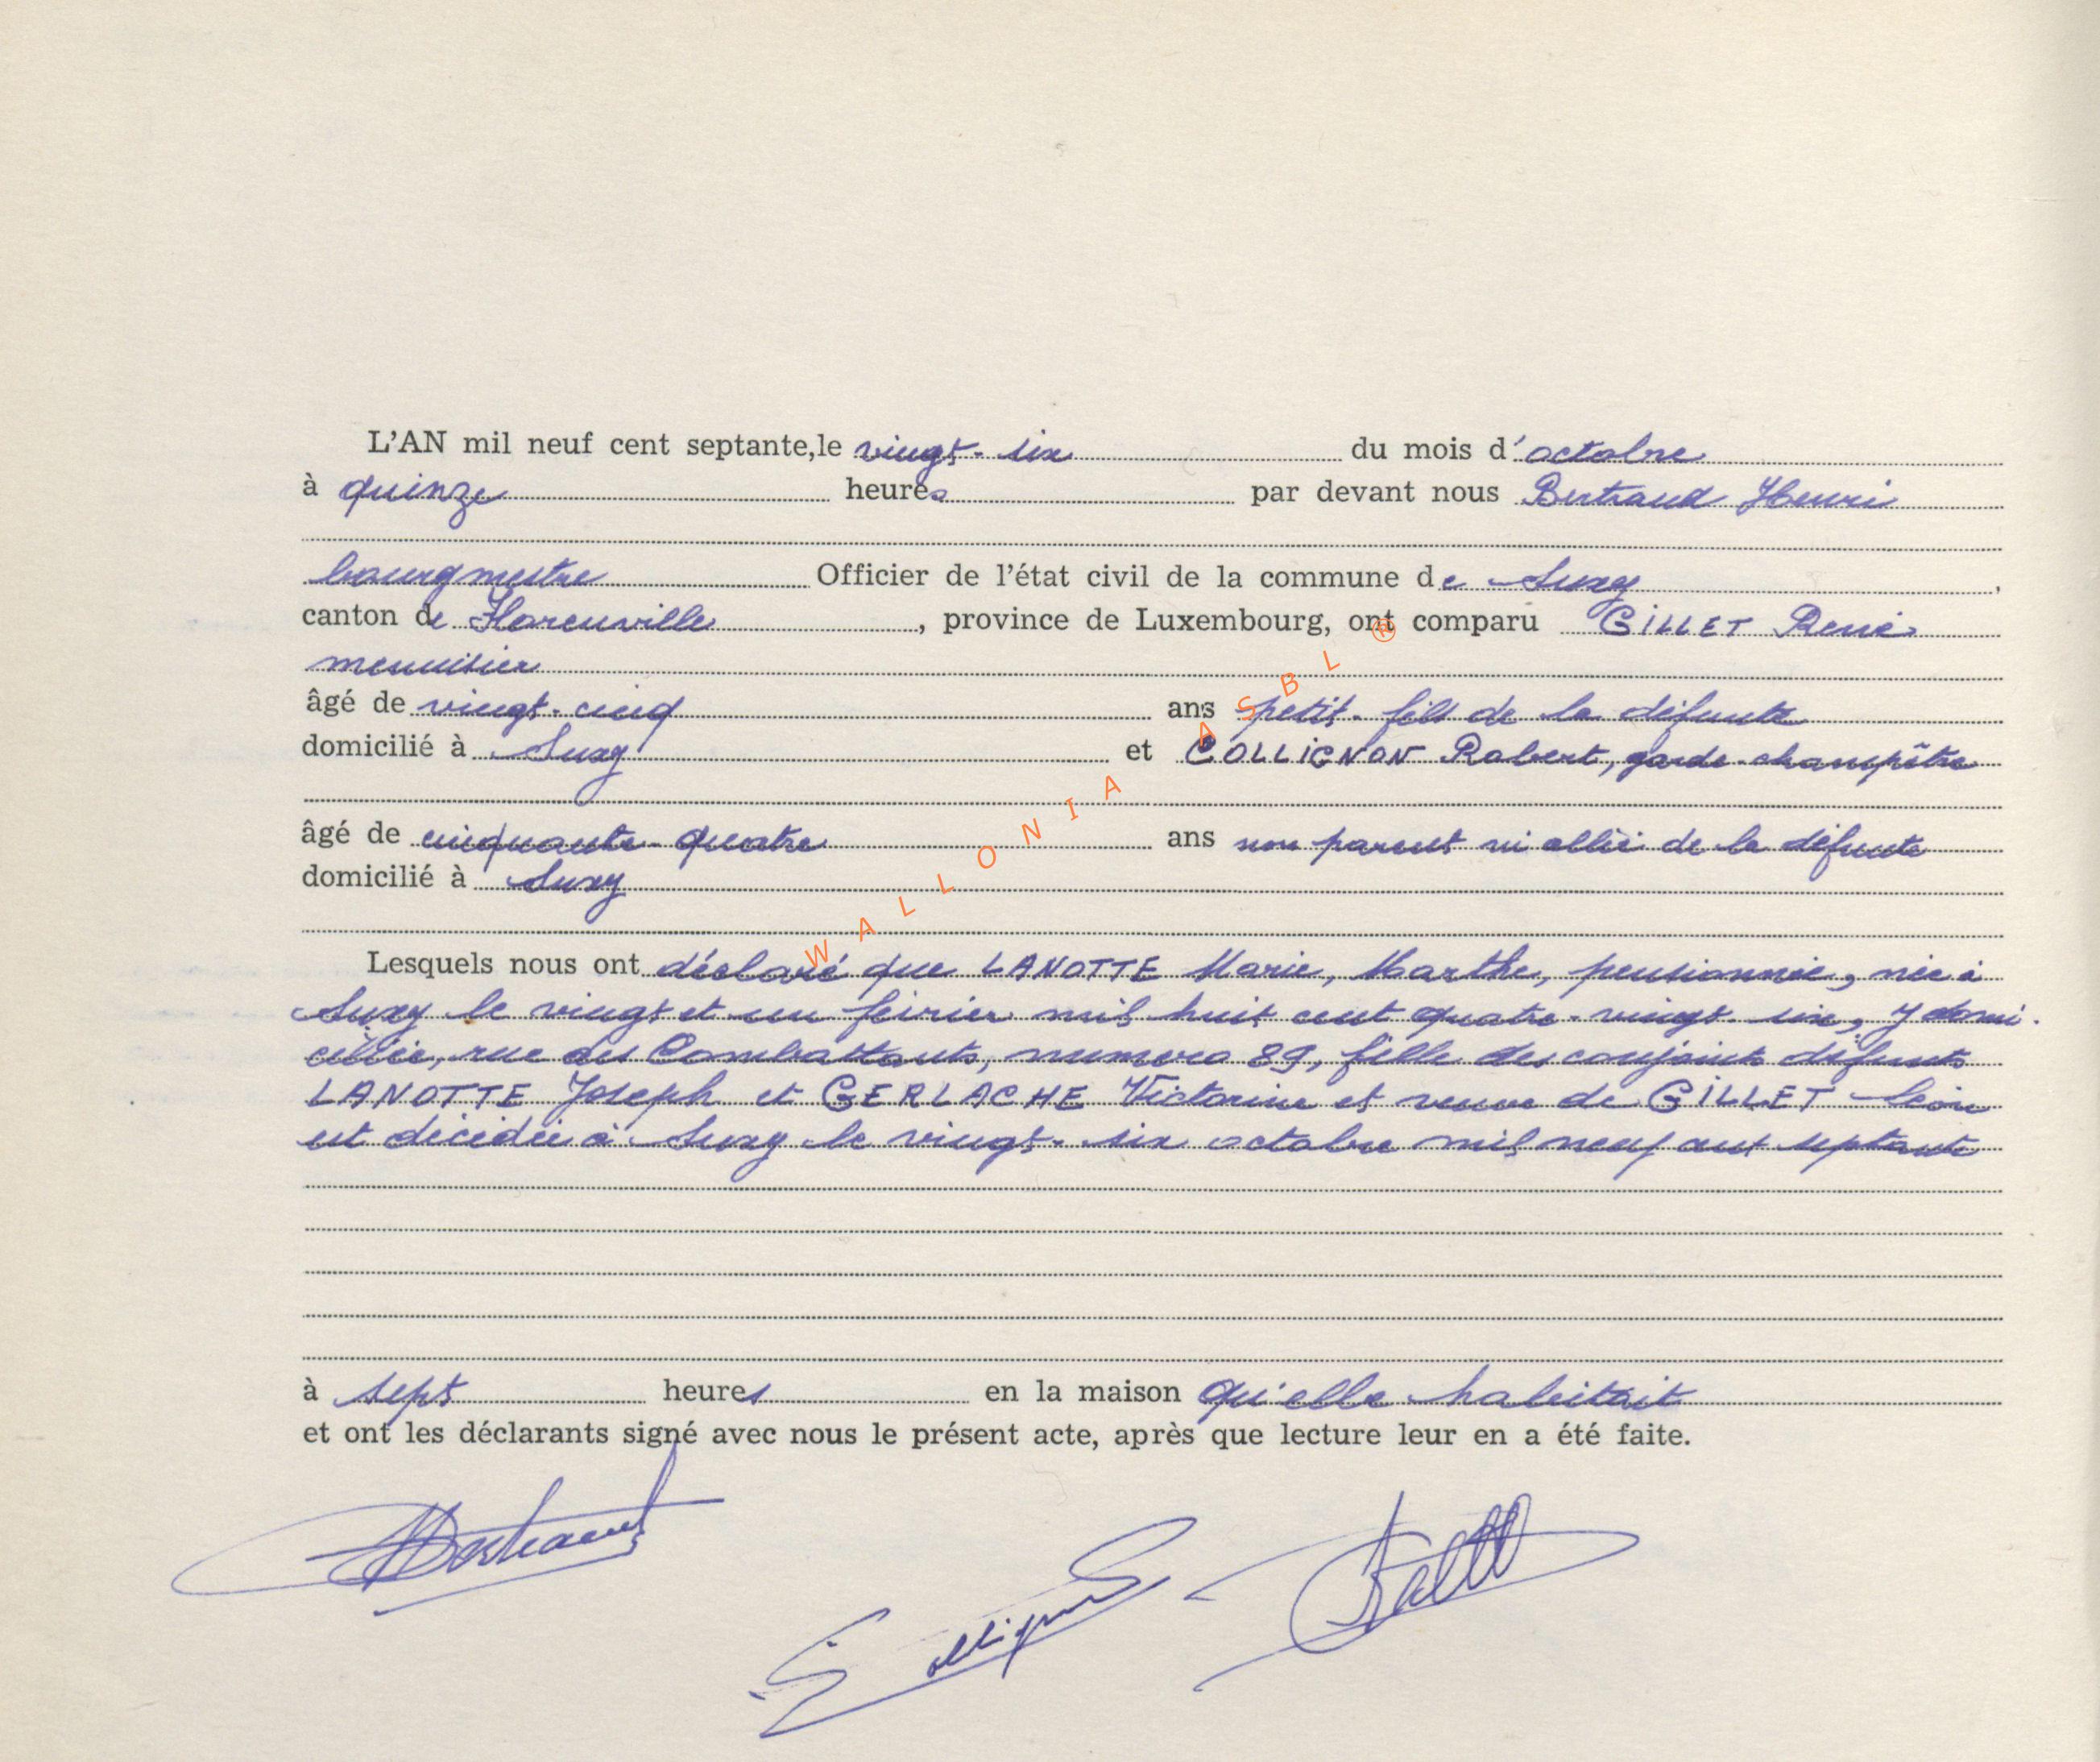 L'AN mil neuf cent septante, le vingt-six du mois d'octobre
à quinze heures par devant nous Bertrand Henri
bourgmestre Officier de l'état civil de la commune de Suxy,
canton de Florenville, province de Luxembourg, ont comparu GILLET René
menuisier
âgé de vingt-cinq ans petit-fils de la défunte
domicilié à Suxy et COLLIGNON Robert, garde-champêtre
âgé de cinquante-quatre ans non parent ni allié de la défunte
domicilié à Suxy
Lesquels nous ont déclaré que LANOTTE Marie, Marthe, pensionnée, née à
Suxy le vingt et un février mil huit cent quatre-vingt-six, y domi-
ciliée, rue des Combattants, numéro 89, fille des conjoints défunts
LANOTTE Joseph et GERLACHE Victorine et veuve de GILLET Léon
est décédée à Suxy le vingt-six octobre mil neuf cent septante
à sept heures en la maison qu'elle habitait
et ont les déclarants signé avec nous le présent acte, après que lecture leur en a été faite.
HBertrand
Collignon
WALLONIA ASBL ®